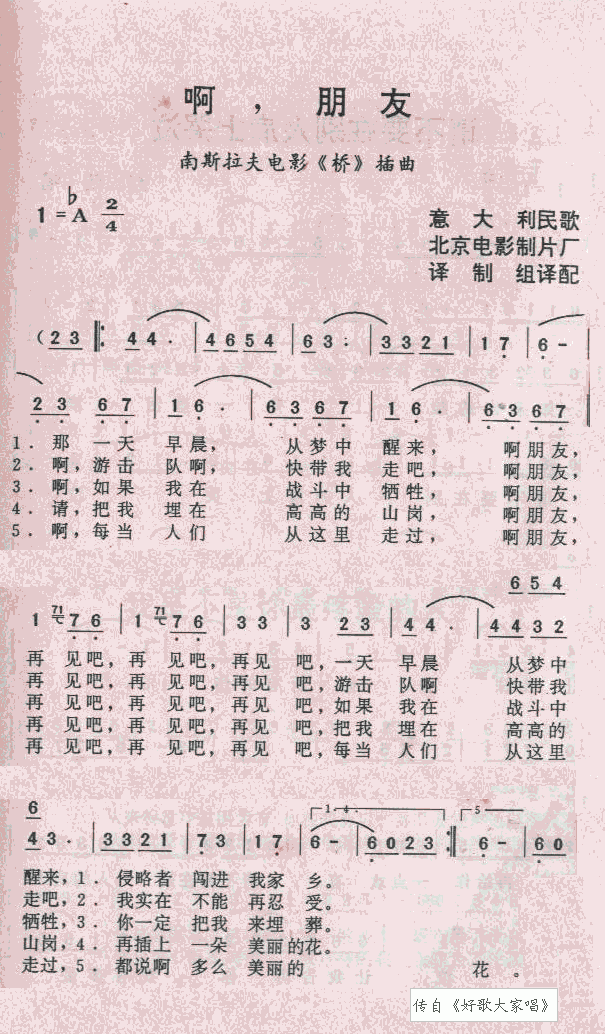 啊，朋友
南斯拉夫电影《桥》插曲
1 = ♭A 2/4
意大利民歌
北京电影制片厂
译制组译配
（2 3 ‖: 4 4 · | 4 6 5 4 | 6 3 · | 3 3 2 1 | 1 7 | 6 - |
2 3 6 7 | 1 6 · | 6 3 6 7 | 1 6 · | 6 3 6 7 |
1．那一天早晨，从梦中醒来，啊朋友，
2．啊，游击队啊，快带我走吧，啊朋友，
3．啊，如果我在战斗中牺牲，啊朋友，
4．请，把我埋在高高的山岗，啊朋友，
5．啊，每当人们从这里走过，啊朋友，
6 5 4
1 71 7 6 | 1 71 7 6 | 3 3 | 3 2 3 | 4 4 · | 4 4 3 2
再见吧，再见吧，再见吧，一天早晨从梦中
再见吧，再见吧，再见吧，游击队啊快带我
再见吧，再见吧，再见吧，如果我在战斗中
再见吧，再见吧，再见吧，把我埋在高高的
再见吧，再见吧，再见吧，每当人们从这里
6
1 - 4. 5
4 3 · | 3 3 2 1 | 7 3 | 1 7 | 6 - | 6 0 2 3 :‖ 6 - | 6 0
醒来，1．侵略者闯进我家乡。
走吧，2．我实在不能再忍受。
牺牲，3．你一定把我来埋葬。
山岗，4．再插上一朵美丽的花。
走过，5．都说啊多么美丽的花。
传自《好歌大家唱》